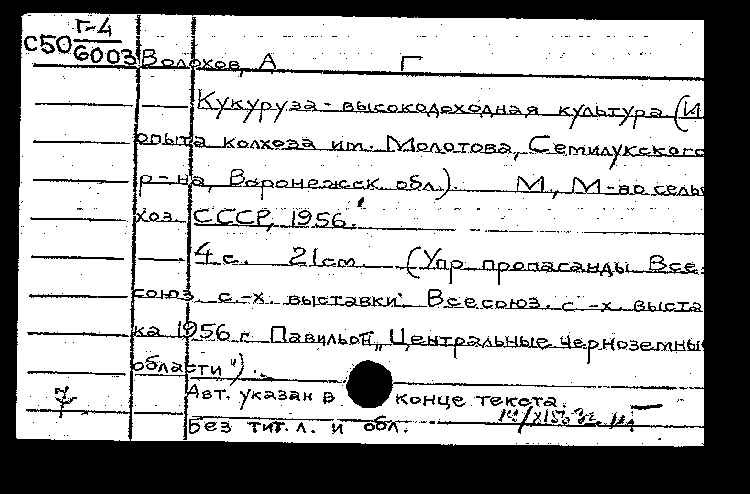 Г-4
С50 6003 Волохов, А Г
Кукуруза - высокодоходная культура (И
опыта колхоза им. Молотова, Семилукского
р-на, Воронежск. обл.). М., М-во сель
хоз. СССР, 1956.
4 с. 21 см. (Упр. пропаганды Все-
союз. с.-х. выставки. Всесоюз. с.-х. выста
ка 1956 г. Павильон „Центральные черноземные
области").
Авт. указан в конце текста.
Без тит. л. и обл.